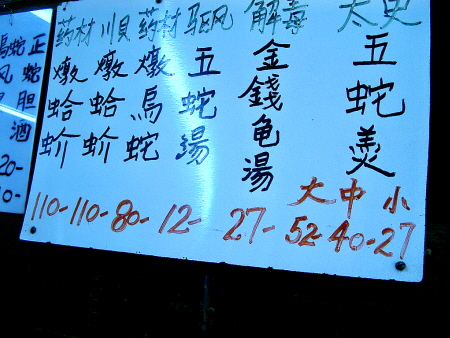 太史
五蛇羹
大 中 小
52-40-27
解毒
金錢龟湯
27-
驱风
五蛇湯
12-
药材
燉烏蛇
80-
川貝
燉蛤蚧
110-
药材
燉蛤蚧
110-
正蛇胆酒